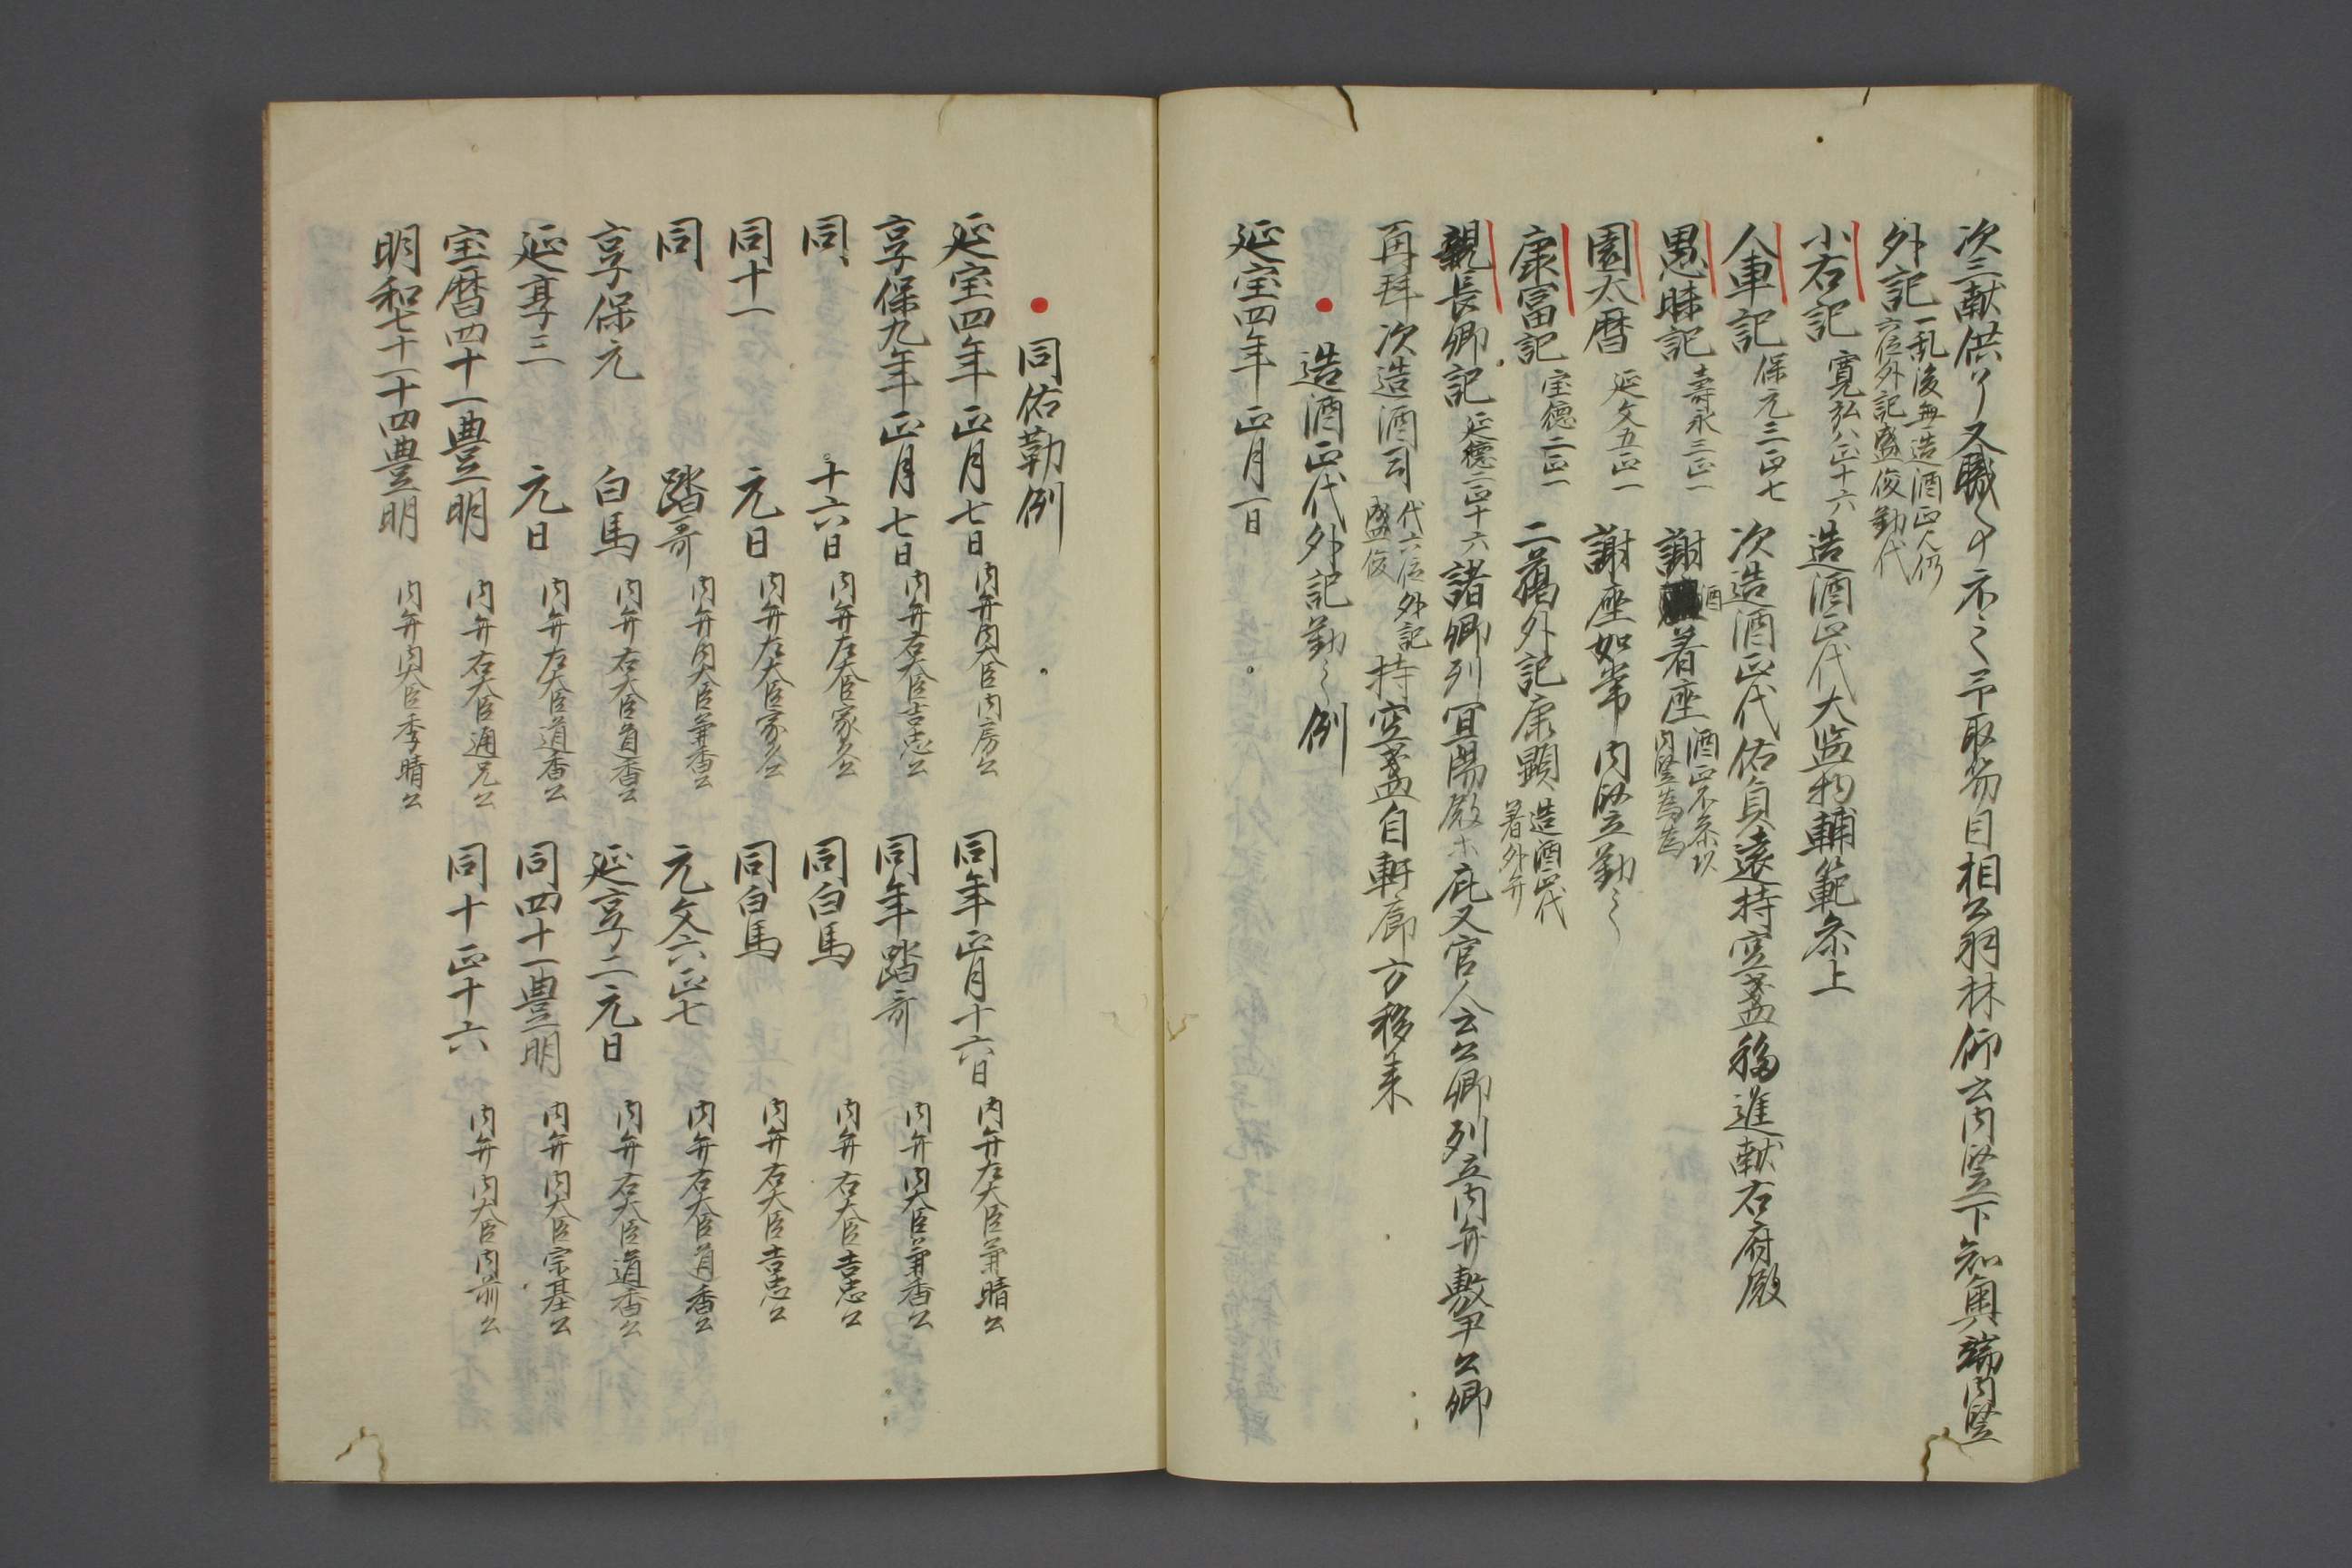 次三献供了又職事不之予取笏目相公羽林仰云内竪下知奥端内竪
外記一乱後無造酒正人仍
六位外記盛俊勤代
小右記 寛弘八正十六 造酒正代大監物輔範参上
人車記 保元三正七 次造酒正代佑貞遠持空盞移進献右府殿
愚昧記 壽永三正一 謝酒着座酒正不参以
内竪為
園太暦 延文五正一 謝座如常内竪勤之
康富記 宝徳二正一 二﨟外記康顕造酒正代
着外弁
親長卿記 延徳二正十六 諸卿列宜陽殿庇又官人云公卿列立内弁敷尹公卿
再拝次造酒司代六位外記
盛俊 持空盞自軒廊方移来
造酒正代外記勤之例
延宝四年正月一日
同佑勤例
延宝四年正月七日 内弁内大臣内房公 同年正月十六日 内弁左大臣兼晴公
享保九年正月七日 内弁右大臣吉忠公 同年踏哥 内弁内大臣兼香公
同 十六日 内弁左大臣家久公 同白馬 内弁右大臣吉忠公
同十一 元日 内弁左大臣家久公 同白馬 内弁右大臣吉忠公
同 踏哥 内弁内大臣兼香公 元文六正七 内弁右大臣道香公
享保元 白馬 内弁右大臣道香公 延享二元日 内弁右大臣道香公
延享三 元日 内弁左大臣道香公 同四十一豊明 内弁内大臣宗基公
宝暦四十一豊明 内弁右大臣通兄公 同十正十六 内弁内大臣内前公
明和七十一十四豊明 内弁内大臣季晴公